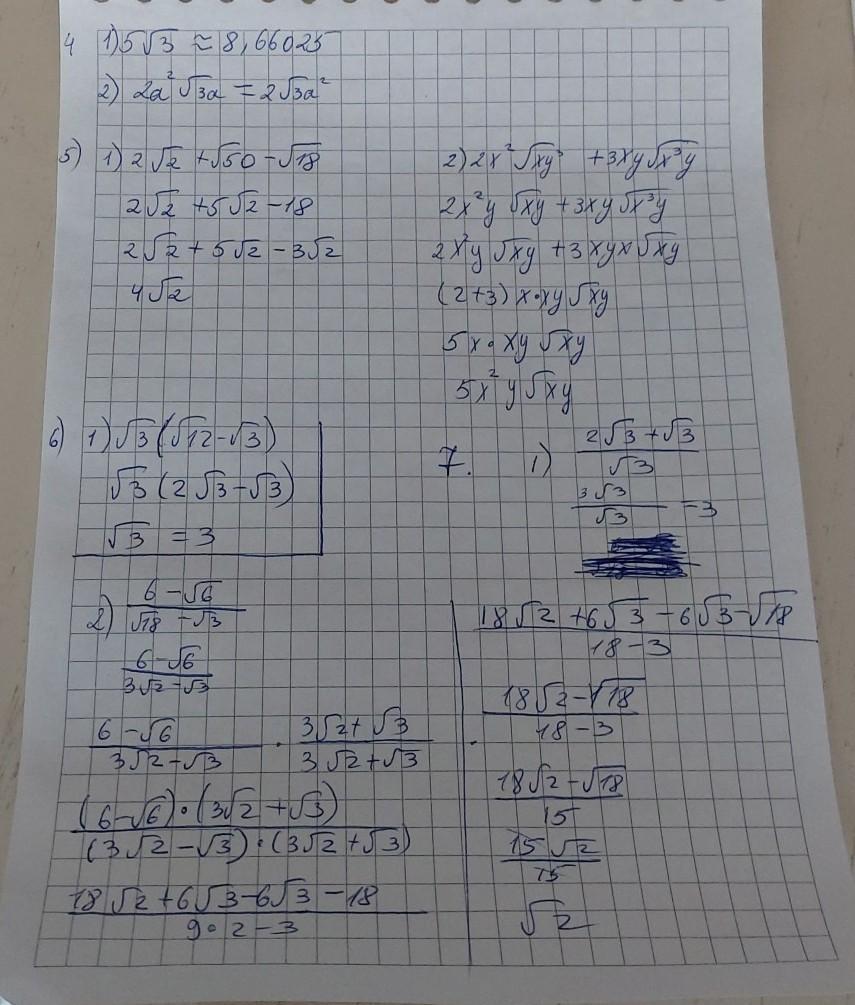 4 1) 5√3 ≈ 8,66025
2) 2a²√3a = 2√3a²
5) 1) 2√2 + √50 - √18
2√2 + 5√2 - 18
2√2 + 5√2 - 3√2
4√2
2) 2x²√xy³ + 3xy√x³y
2x²y √xy + 3xy√x³y
2x²y √xy + 3xyx√xy
(2+3) x·xy√xy
5x·xy√xy
5x²y√xy
6) 1) √3(√12-√3)
√3(2√3-√3)
√3 = 3
7. 1) 2√3+√3
√3
3√3
√3
=3
2) 6-√6
√18-√3
6-√6
3√2-√3
6-√6 · 3√2+√3
3√2-√3 3√2+√3
(6-√6)·(3√2+√3)
(3√2-√3)·(3√2+√3)
18√2+6√3-6√3-18
9·2-3
18√2+6√3-6√3-√18
18-3
18√2-√18
18-3
18√2-√18
15
15√2
15
√2